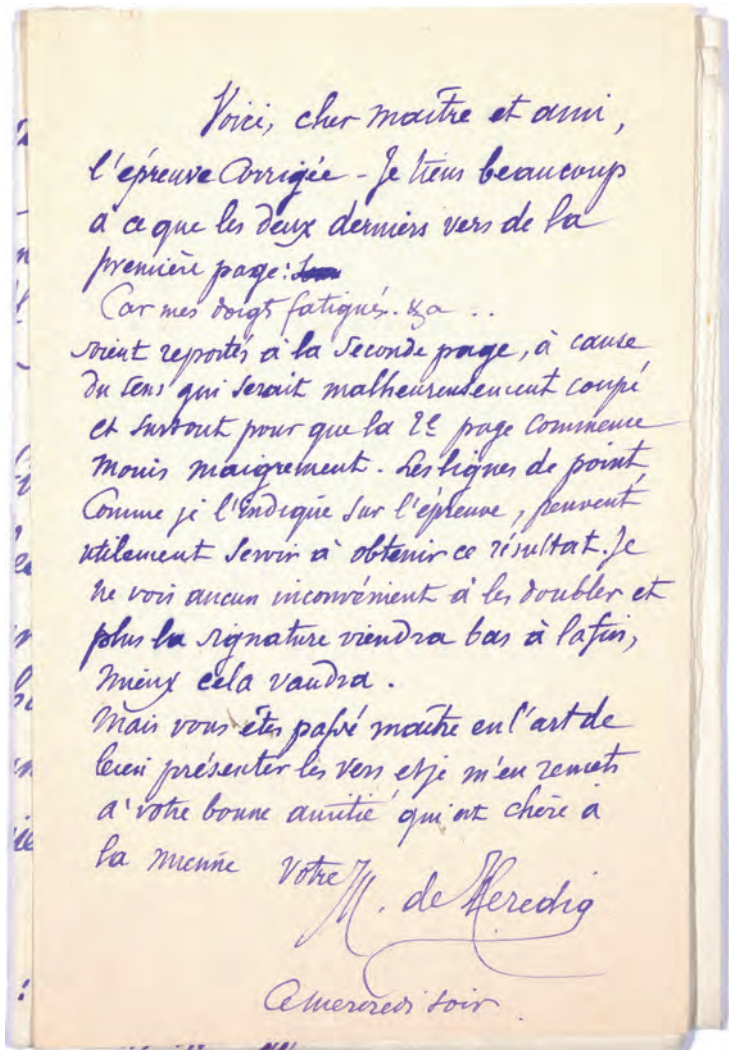 Voici, cher maître et ami,
l'épreuve corrigée - Je tiens beaucoup
à ce que les deux derniers vers de la
première page :
Car mes doigts fatigués. &a ..
soient reportés à la seconde page, à cause
du sens qui serait malheureusement coupé
et surtout pour que la 2e page commence
moins maigrement. Les lignes de point,
comme je l'indique sur l'épreuve, peuvent
utilement servir à obtenir ce résultat. Je
ne vois aucun inconvénient à les doubler et
plus la signature viendra bas à la fin,
mieux cela vaudra.
Mais vous êtes passé maître en l'art de
bien présenter les vers et je m'en remets
à votre bonne amitié qui est chère à
la mienne Votre
de Heredia
Ce mercredi soir.